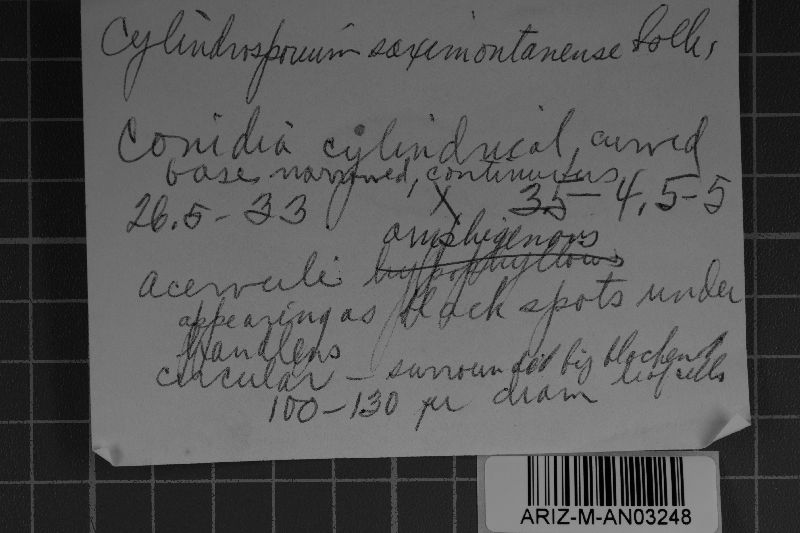 Cylindrosporium saximontanense Solh.
Conidia cylindrical, curved
base narrowed, continuous
26.5-33 X 35-4,5-5
amphigenous
acervuli hypophyllous
appearing as black spots under
handlens
circular - surrounded by blackened
leaf cells
100-130 µ diam
ARIZ-M-AN03248